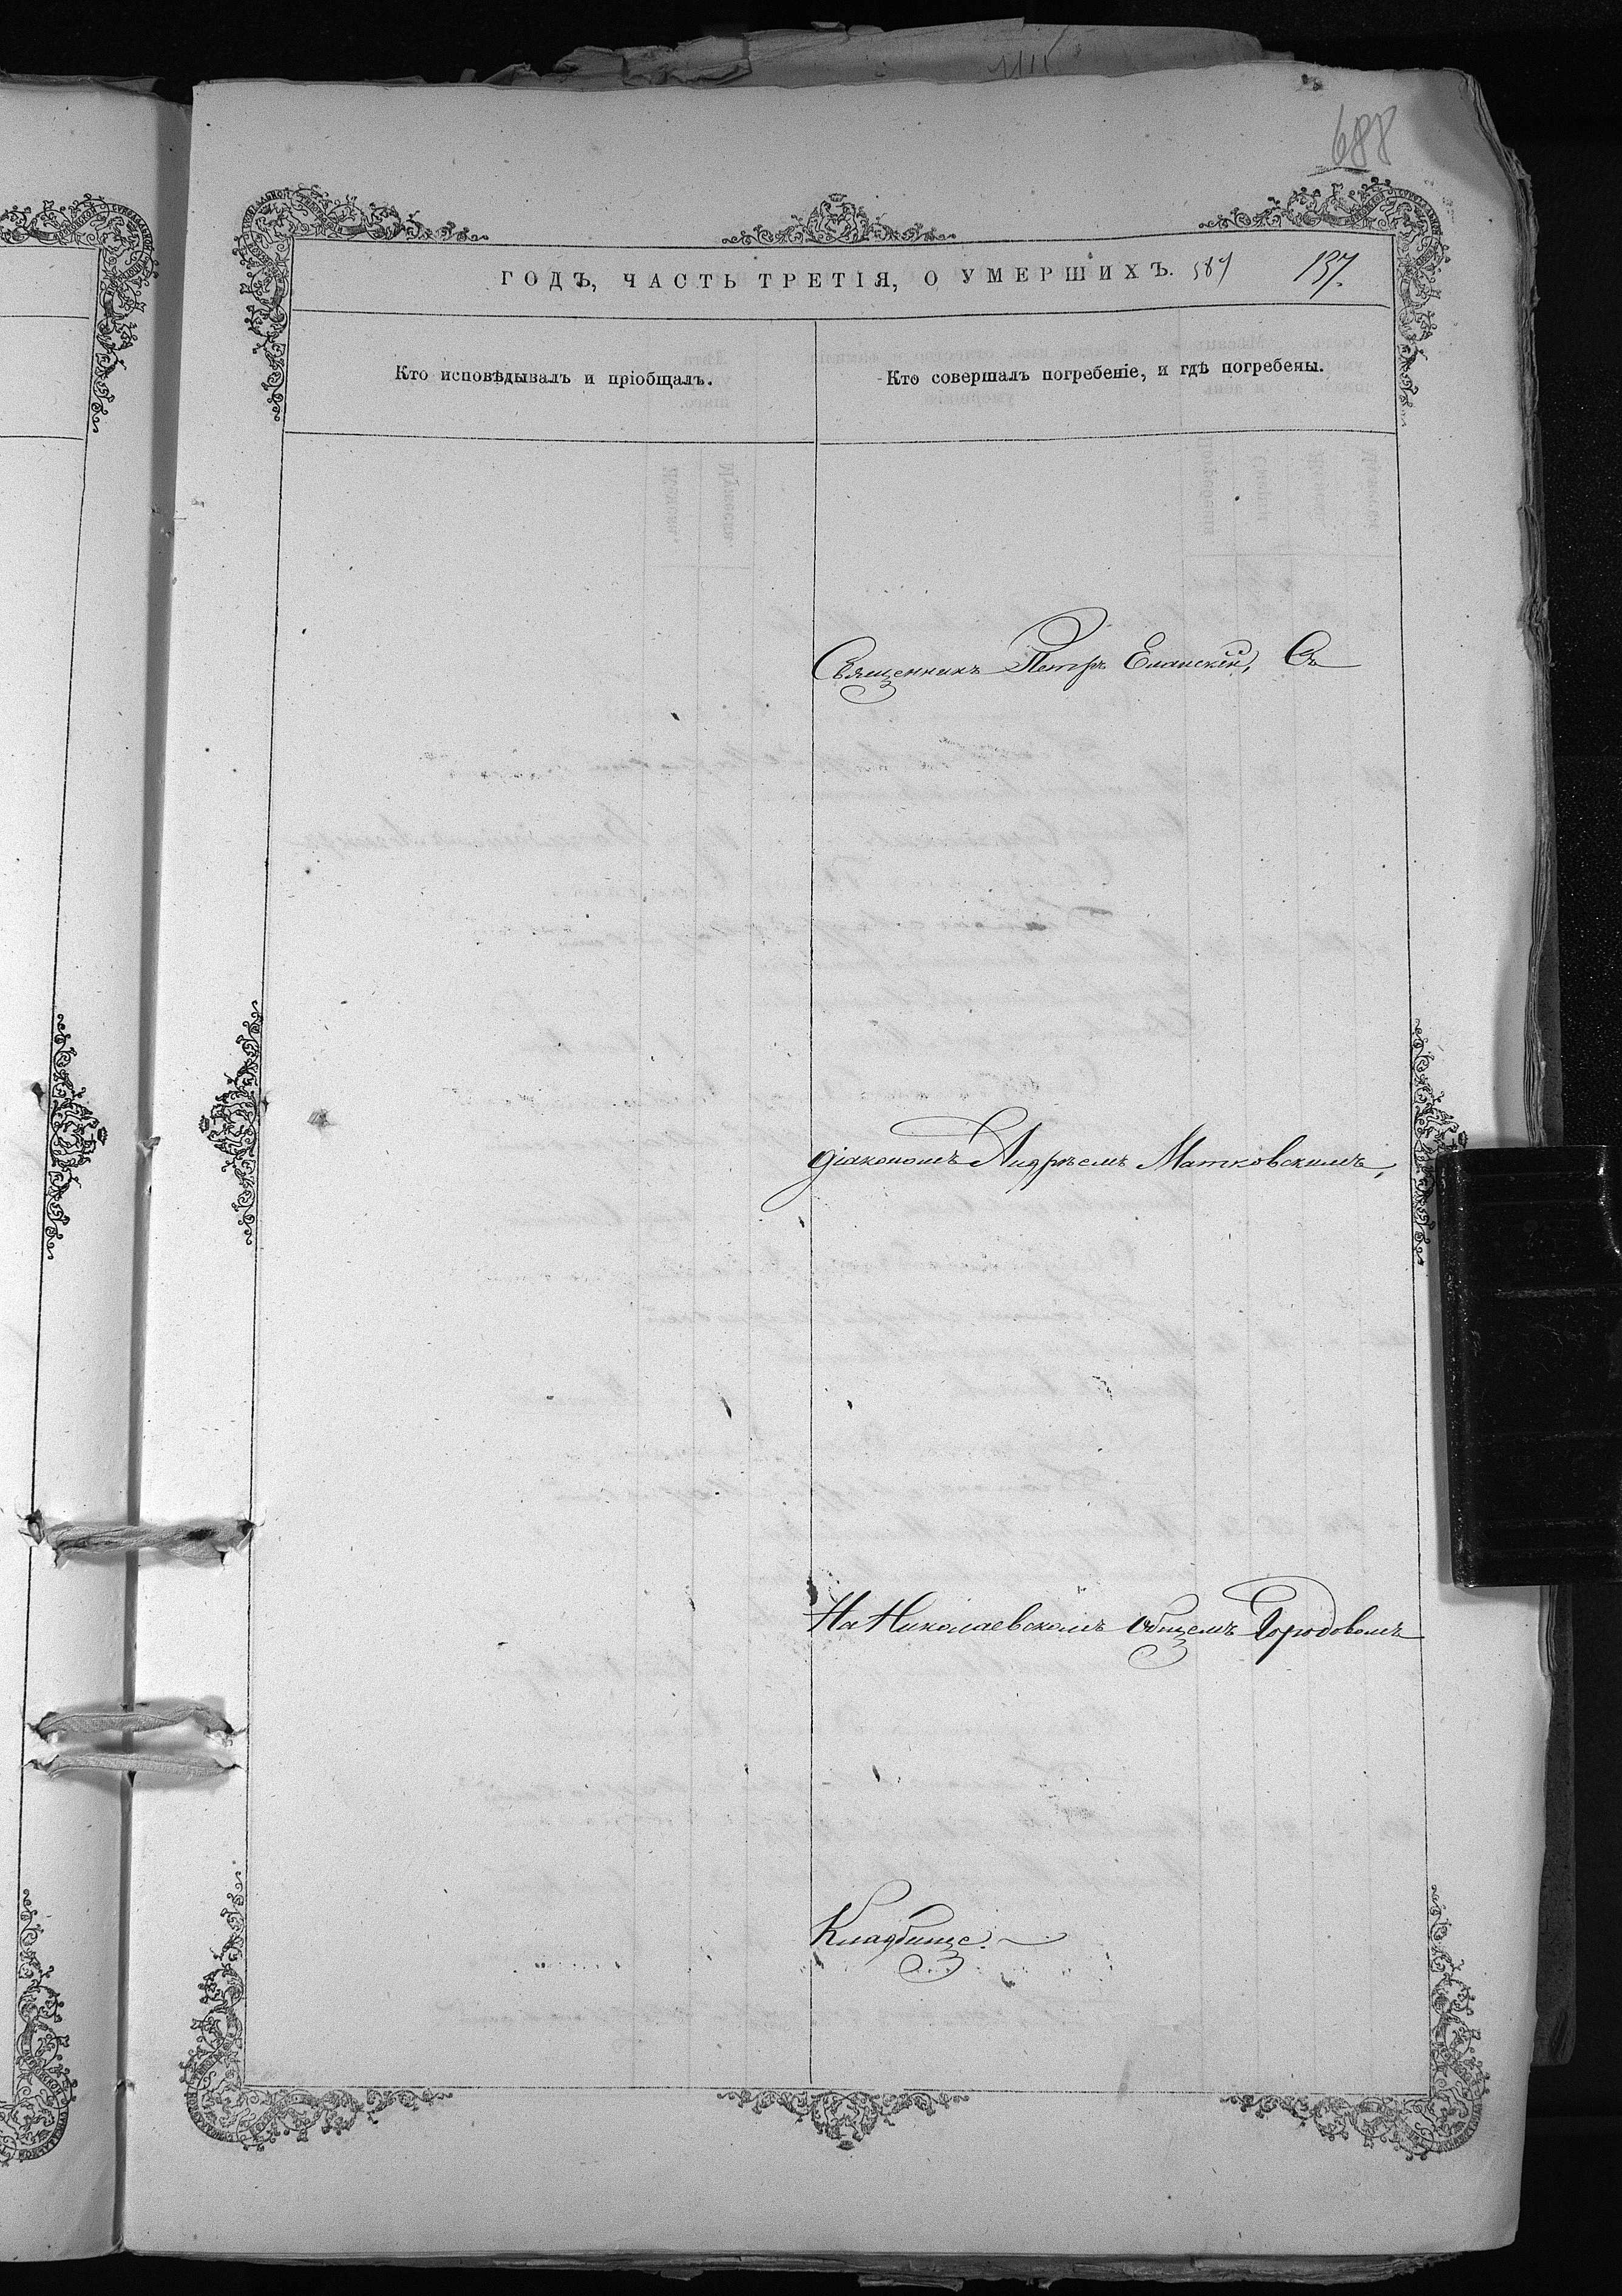 688
ГОДЪ, ЧАСТЬ ТРЕТІЯ, О УМЕРШИХЪ. 587 137.
Кто исповѣдывалъ и пріобщалъ.
Кто совершалъ погребеніе, и гдѣ погребены.
Священникъ Петръ Еланскій, Съ
діакономъ Андреемъ Матковскимъ,
На Николаевскомъ общемъ Городовомъ
Кладбище.